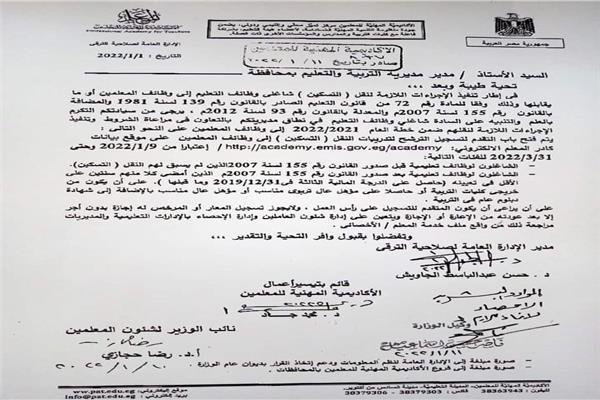 Professional Academy for Teachers
الأكاديمية المهنية للمعلمين مركز تميز محلي وإقليمي ودولي، يضمن
جمهورية مصر العربية
الإدارة العامة لصلاحية الترقي
التاريخ : 2022/1/1
الأكاديمية المهنية للمعلمين
صادر بتاريخ ٢٠٢٢/١/١١
السيد الأستاذ / مدير مديرية التربية والتعليم بمحافظة
تحية طيبة وبعد ...
في إطار تنفيذ الأجراءات اللازمة لنقل ( التسكين ) شاغلي وظائف التعليم إلى وظائف المعلمين أو ما
يقابلها وذلك وفقا للمادة رقم 72 من قانون التعليم الصادر بالقانون رقم 139 لسنة 1981 والمضافة
بالقانون رقم 155 لسنة 2007م والمعدلة بالقانون رقم 93 لسنة 2012م ، يرجى من سيادتكم التكرم
بالعلم والتنبيه على السادة شاغلي وظائف التعليم في نطاق مديريتكم بالتعاون في مراعاة الشروط وتنفيذ
الإجراءات اللازمة لنقلهم ضمن خطة العام 2022/2021 إلى وظائف المعلمين على النحو التالي :
يتم فتح باب التقدم لتسجيل الترشح لتدريبات النقل ( التسكين ) إلى وظائف المعلمين على موقع بيانات
كادر المعلم الإلكتروني: http://academy.emis.gov.eg/academy إعتبارا من 2022/1/9 وحتى
2022/3/31 للفئات التالية:
الشاغلون لوظائف تعليمية قبل صدور القانون رقم 155 لسنة 2007الذين لم يسبق لهم النقل (التسكين).
الشاغلون لوظائف تعليمية بعد صدور القانون رقم 155 لسنة 2007م الذين أمضى كلا منهم سنتين على
الأقل في تعيينه (حاصل على الدرجة المالية الثالثة فى 2019/12/31 وما قبلها ). على أن يكون من
خريجي كليات التربية أو حاصلا على مؤهل عال تربوي مناسب أو مؤهل عال مناسب بالإضافة إلى شهادة
دبلوم عام فى التربية .
على أن يراعى أن يكون المتقدم للتسجيل على رأس العمل ، ولايجوز تسجيل المعار أو المرخص له إجازة بدون أجر
إلا بعد عودته من الإعارة أو الإجازة ويتعين على إدارة شئون العاملين وإدارة الإحصاء بالإدارات التعليمية والمديريات
مراجعة ذلك من واقع ملف خدمة المعلم / الأخصائى .
وتفضلوا بقبول وافر التحية والتقدير ...
مدير الإدارة العامة لصلاحية الترقى
د . حسن عبدالباسط الجاويش
قائم بتيسيرأعمال
الأكاديمية المهنية للمعلمين
د. محمد
وكيل الوزارة
نائب الوزير لشئون المعلمين
أ.د. رضا حجازي
صورة مبلغة إلى الإدارة العامة لنظم المعلومات ودعم إتخاذ القرار بديوان عام الوزارة .
صورة مبلغة إلى فروع الأكاديمية المهنية للمعلمين بالمحافظات .
موقع إلكتروني: www.pat.edu.eg
بريد إلكتروني: info@pat.edu.eg
فاكس: 38379306 - 38379303